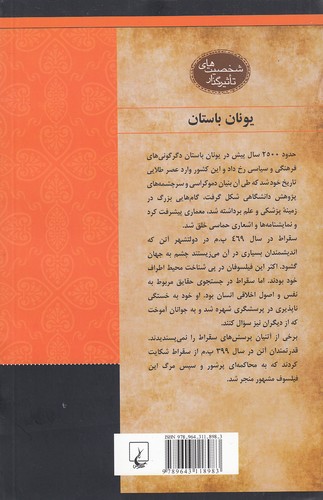 شخصیت‌های
تأثیرگذار
یونان باستان
حدود ۲۵۰۰ سال پیش در یونان باستان دگرگونی‌های
فرهنگی و سیاسی رخ داد و این کشور وارد عصر طلایی
تاریخ خود شد که طی آن بنیان دموکراسی و سرچشمه‌های
پژوهش دانشگاهی شکل گرفت، گام‌هایی بزرگ در
زمینهٔ پزشکی و علم برداشته شد، معماری پیشرفت کرد
و نمایشنامه‌ها و اشعاری حماسی خلق شد.
سقراط در سال ۴۶۹ ب‌.م در دولتشهر آتن که
اندیشمندان بسیاری در آن می‌زیستند چشم به جهان
گشود. اکثر این فیلسوفان در پی شناخت محیط اطراف
خود بودند. اما سقراط در جستجوی حقایق مربوط به
نفس و اصول اخلاقی انسان بود. او خود به خستگی
ناپذیری در پرسشگری شهره شد و به جوانان آموخت
که از دیگران نیز سؤال کنند.
برخی از آتنیان پرسش‌های سقراط را نمی‌پسندیدند.
قدرتمندان آتن در سال ۳۹۹ ب‌.م از سقراط شکایت
کردند که به محاکمه‌ای پرشور و سپس مرگ این
فیلسوف مشهور منجر شد.
ISBN 978_964_311_898_3
9789643118983